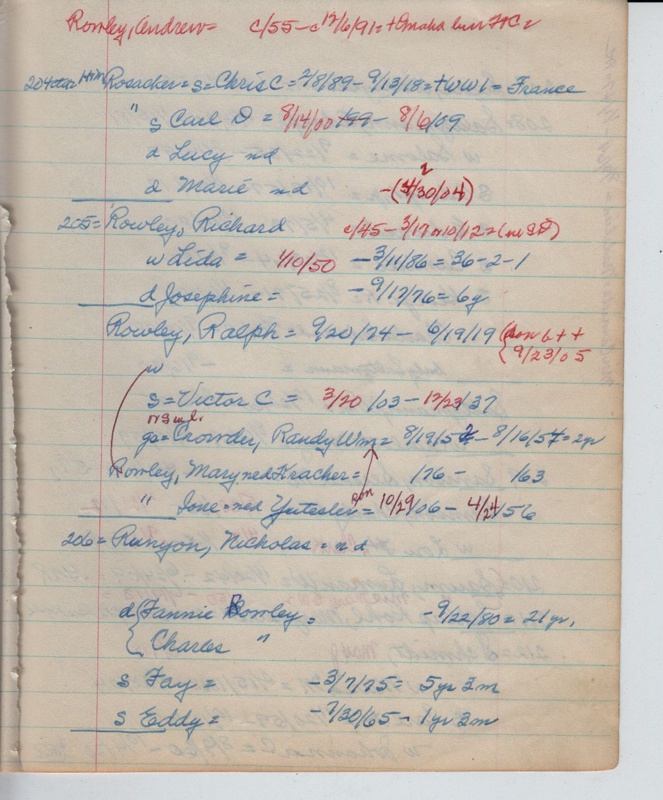 Rowley, Andrew = c/55 – c 12/6/91 = + Omaha
204 Rosacker = s = Chris C = 2/8/89 – 9/13/18 = + WW1 = France
" s Carl D = 8/14/00 – 8/6/09
d Lucy nd
d Marie nd – (4/30/04)
205 = Rowley, Richard c/45 – 3/17 or 10/12 =
w Lida = 4/10/50 – 3/11/86 = 36-2-1
d Josephine = – 9/17/76 = 6y
Rowley, Ralph = 9/20/74 – 6/19/19 (son b ++
9/23/05
w
s = Victor C = 3/20/03 – 12/23/37
gs = Crowder, Randy Wm = 8/19/52 – 8/16/54 = 2yr
Rowley, Mary ned Kracher = /76 – /63
" Ione = ned = 10/29/06 – 4/24/56
206 = Runyon, Nicholas = nd
d { Fannie Rowley = – 9/22/80 = 21 yr.
Charles "
s Fay = – 3/7/75 = 5 yr 3m
s Eddy = – 7/30/65 – 1 yr 3m